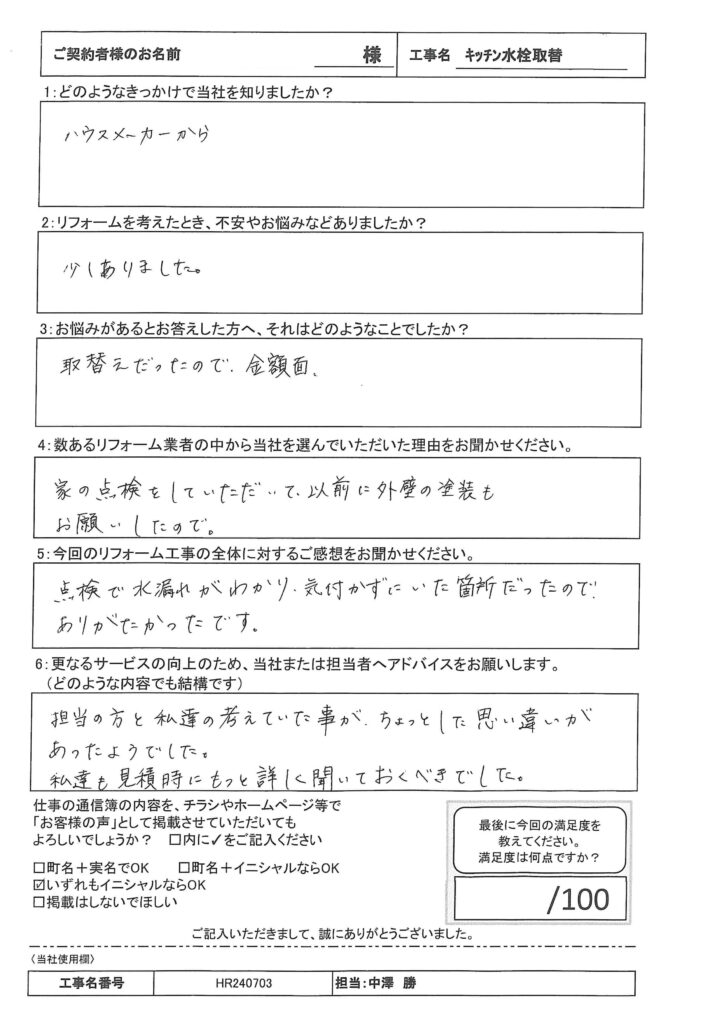 ご契約者様のお名前 様 工事名 キッチン水栓取替
1:どのようなきっかけで当社を知りましたか?
ハウスメーカーから
2:リフォームを考えたとき、不安やお悩みなどありましたか?
少しありました。
3:お悩みがあるとお答えした方へ、それはどのようなことでしたか?
取替えだったので、金額面、
4:数あるリフォーム業者の中から当社を選んでいただいた理由をお聞かせください。
家の点検をしていただいて、以前に外壁の塗装も
お願いしたので。
5:今回のリフォーム工事の全体に対するご感想をお聞かせください。
点検で水漏れがわかり、気付かずにいた箇所だったので、
ありがたかったです。
6:更なるサービスの向上のため、当社または担当者へアドバイスをお願いします。
(どのような内容でも結構です)
担当の方と私達の考えていた事が、ちょっとした思い違いが
あったようでした。
私達も見積時にもっと詳しく聞いておくべきでした。
仕事の通信簿の内容を、チラシやホームページ等で
「お客様の声」として掲載させていただいても
よろしいでしょうか? □内に✓をご記入ください
□町名+実名でOK □町名+イニシャルならOK
☑いずれもイニシャルならOK
□掲載はしないでほしい
最後に今回の満足度を
教えてください。
満足度は何点ですか?
/100
ご記入いただきまして、誠にありがとうございました。
〈当社使用欄〉
工事名番号 HR240703 担当:中澤 勝